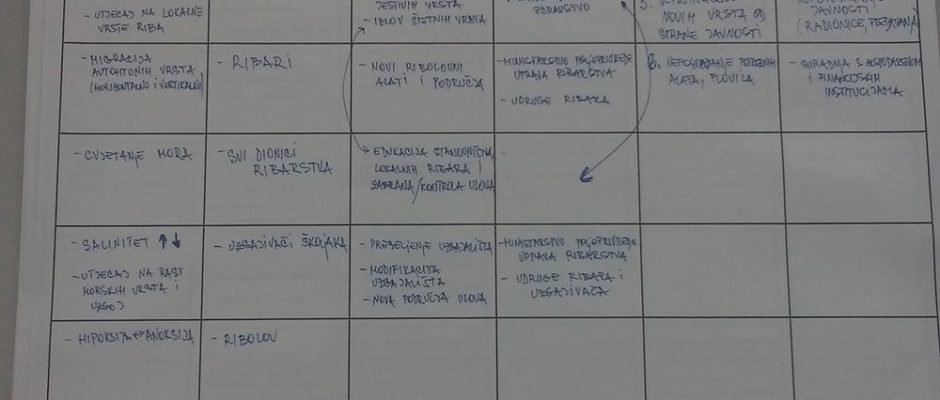 - UTJECAJ NA LOKALNE
VRSTE RIBA
JESTIVIH VRSTA
- IZLOV ŠTETNIH VRSTA
ZDRAVSTVO
5.
NOVIH VRSTA
STRANE JAVNOSTI
JAVNOSTI
(RADIONICE, PREDAVANJA)
- MIGRACIJA
AUTOHTONIH VRSTA
(HORIZONTALNO I VERTIKALNO)
- RIBARI
- NOVI RIBOLOVNI
ALATI I PODRUČJA
- MINISTARSTVO POLJOPRIVREDE
UPRAVA RIBARSTVA
- UDRUGE RIBARA
6. NEPOSJEDOVANJE POTREBNIH
ALATA, PLOVILA
- SURADNJA S GOSPODARSKOM
I FINANCIJSKIM
INSTITUCIJAMA
- CVJETANJE MORA
- SVI DIONICI
RIBARSTVA
EDUKACIJA STANOVNIŠTVA,
LOKALNIH RIBARA I
ZABRANA/KONTROLA ULOVA
-
- SALINITET ↑↓
- UTJECAJ NA RAST
MORSKIH VRSTA I
UZGOJ
- UZGAJIVAČI ŠKOLJAKA
- PRESELJENJE UZGAJALIŠTA
- MODIFIKACIJA
UZGAJALIŠTA
- NOVA PODRUČJA ULOVA
- MINISTARSTVO POLJOPRIVREDE
UPRAVA RIBARSTVA
- UDRUGE RIBARA I
UZGAJIVAČA
- HIPOKSIJA ↔ ANOKSIJA
- RIBOLOV